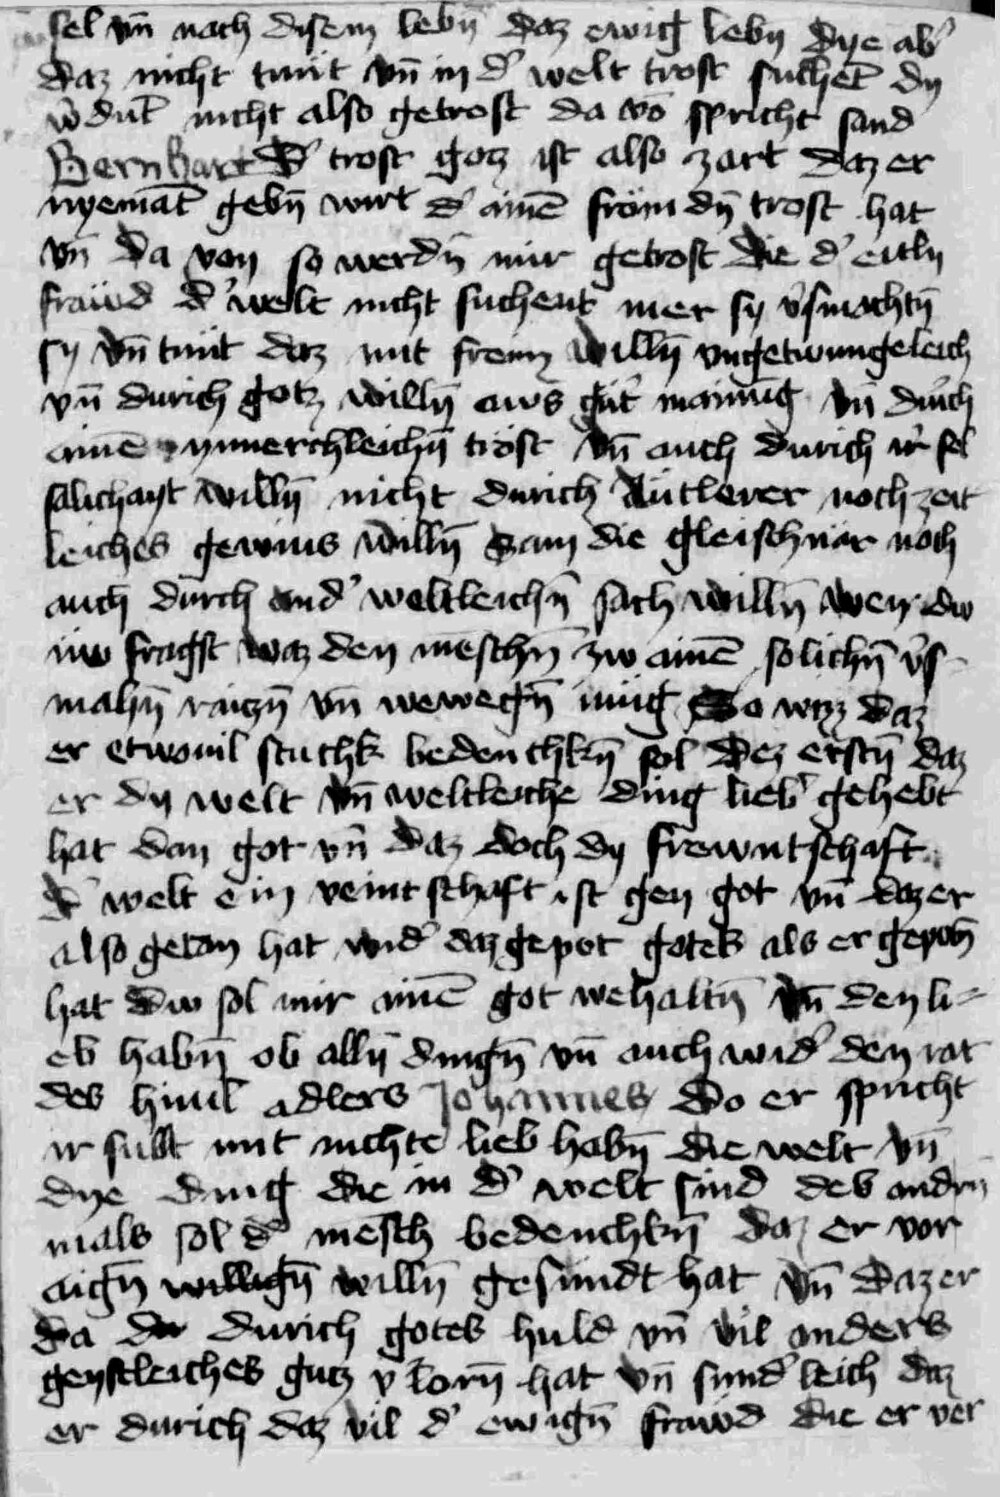 sel vn̄ nach disem lebn̄ daz ewig lebn̄ dye ab'
daz nicht tuut vn̄ in d' welt trost suchet̄ dy
w'dnt̄ nicht also getrost da vō spricht sand
Bernhart D' trost gotz ist also zart daz er
nyemāt gebn̄ wirt d' ainē frömdn̄ trost hat
vn̄ da von so werdn̄ nur getrost die d' eitln
fräwd d' welt nicht suchent mer sy v'smachtn̄
sy vn̄ tuut daz mit freim willn̄ vngetwungeleich
vn̄ durich gotz willn̄ aws gut' mainūg vn̄ durch
ainē ynnerchleichn̄ trost vn̄ auch durich ir sel
salichayt willn̄ nicht durich lautterer noch zeit
leiches gewins willn̄ sam die gleischnär noch
auch durch and' weltleichn̄ sach willn̄ wen du
nw fragst waz den mēschn̄ zw ainē solichn̄ v's-
mahn̄ raizn̄ vn̄ wewegn̄ mug So wizz daz
er etwouil stuchk bedenchkn̄ sol Dez erstn̄ daz
er dy welt vn̄ weltleiche ding lieb' gehebt
hat dan got vn̄ daz doch dy frewntschaft
d' welt ein veintschaft ist gen got vn̄ daz er
also getan hat wid' daz gepot gotes als er gepotn̄
hat Dw sol nur ainē got wehaltn̄ vn̄ den li-
eb habn̄ ob alln̄ dingn̄ vn̄ auch wid' den rat
des himl adlers Johannes do er spricht
ir sult mit nichte lieb habn̄ die welt vn̄
dye ding die in d' welt sind des andrn
mals sol d' mēsch bedenchkn̄ daz er vor
aign̄ willign̄ willn̄ gesundt hat vn̄ daz er
da du durich gotes huld vn̄ vil anders
geystleiches gutz v'lorn̄ hat vn̄ sund'leich daz
er durich daz vil d' ewign̄ frawd die er ver